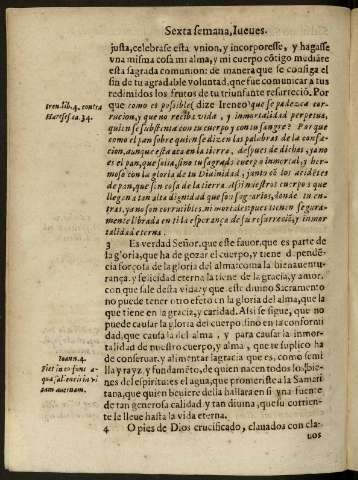 Sexta semana, Iueues.
justa, celebrase esta vnion, y incorporesse, y hagasse
vna misma cosa mi alma, y mi cuerpo cõtigo mediãte
esta sagrada comunion: de manera que se consiga el
fin de tu agradable voluntad, que fue comunicar a tus
redimidos los frutos de tu triunfante resurreciõ. Por
Iren. lib. 4. contra
Hæreses ca. 34.
que como es possible (dize Ireneo) que se padezca cor-
rucion, y que no reciba vida, y inmortalidad perpetua,
quien se substenta con tu cuerpo y con tu sangre? Porque
como el pan sobre quien se dizen las palabras de la
cion, aunque esta aca en la tierra, despues de dichas, ya no
es el pan, que solia, sino tu sagrado cuerpo inmortal, y her-
moso con la gloria de tu Diuinidad, junto cõ los acidẽtes
de pan, que son cosa de la tierra. Assi nuestros cuerpos que
llegan a tan alta dignidad que son sagrarios, donde tu en-
tras, ya no son corruptibles, ni mortales pues tienen segura-
mente librada en ti la esperança de su resurreciõ, y inmor
talidad eterna.
3 Es verdad Señor, que este fauor, que es parte de
la gloria, que ha de gozar el cuerpo, y tiene dependẽ-
cia forçosa de la gloria del alma: como la bienauentu-
rança, y felicidad eterna la tiene de la gracia, y amor,
con que sale desta vida: y que este diuino Sacramento
no puede tener otro efeto en la gloria del alma, que la
que tiene en la gracia, y caridad. Assi se sigue, que no
puede causar la gloria del cuerpo, sino en la conformi
dad, que causa la del alma, y para causar la inmor-
talidad de nuestro cuerpo, y alma, que te suplico ha
Ioann. 4.
Fiet in eo fons a-
quæ salientis in vi
tam æternam.
de conseruar, y alimentar la gracia que es, como semi
lla y rayz, y fundamẽto, de quien nacen todos los bie-
nes del espiritu: es el agua, que prometiste a la Samari
tana, que quien beuiere della hallara en si vna fuente
de tan generosa calidad y tan diuina, que su corriente
le lleue hasta la vida eterna.
4 O pies de Dios crucificado, clauados con cla-
uos